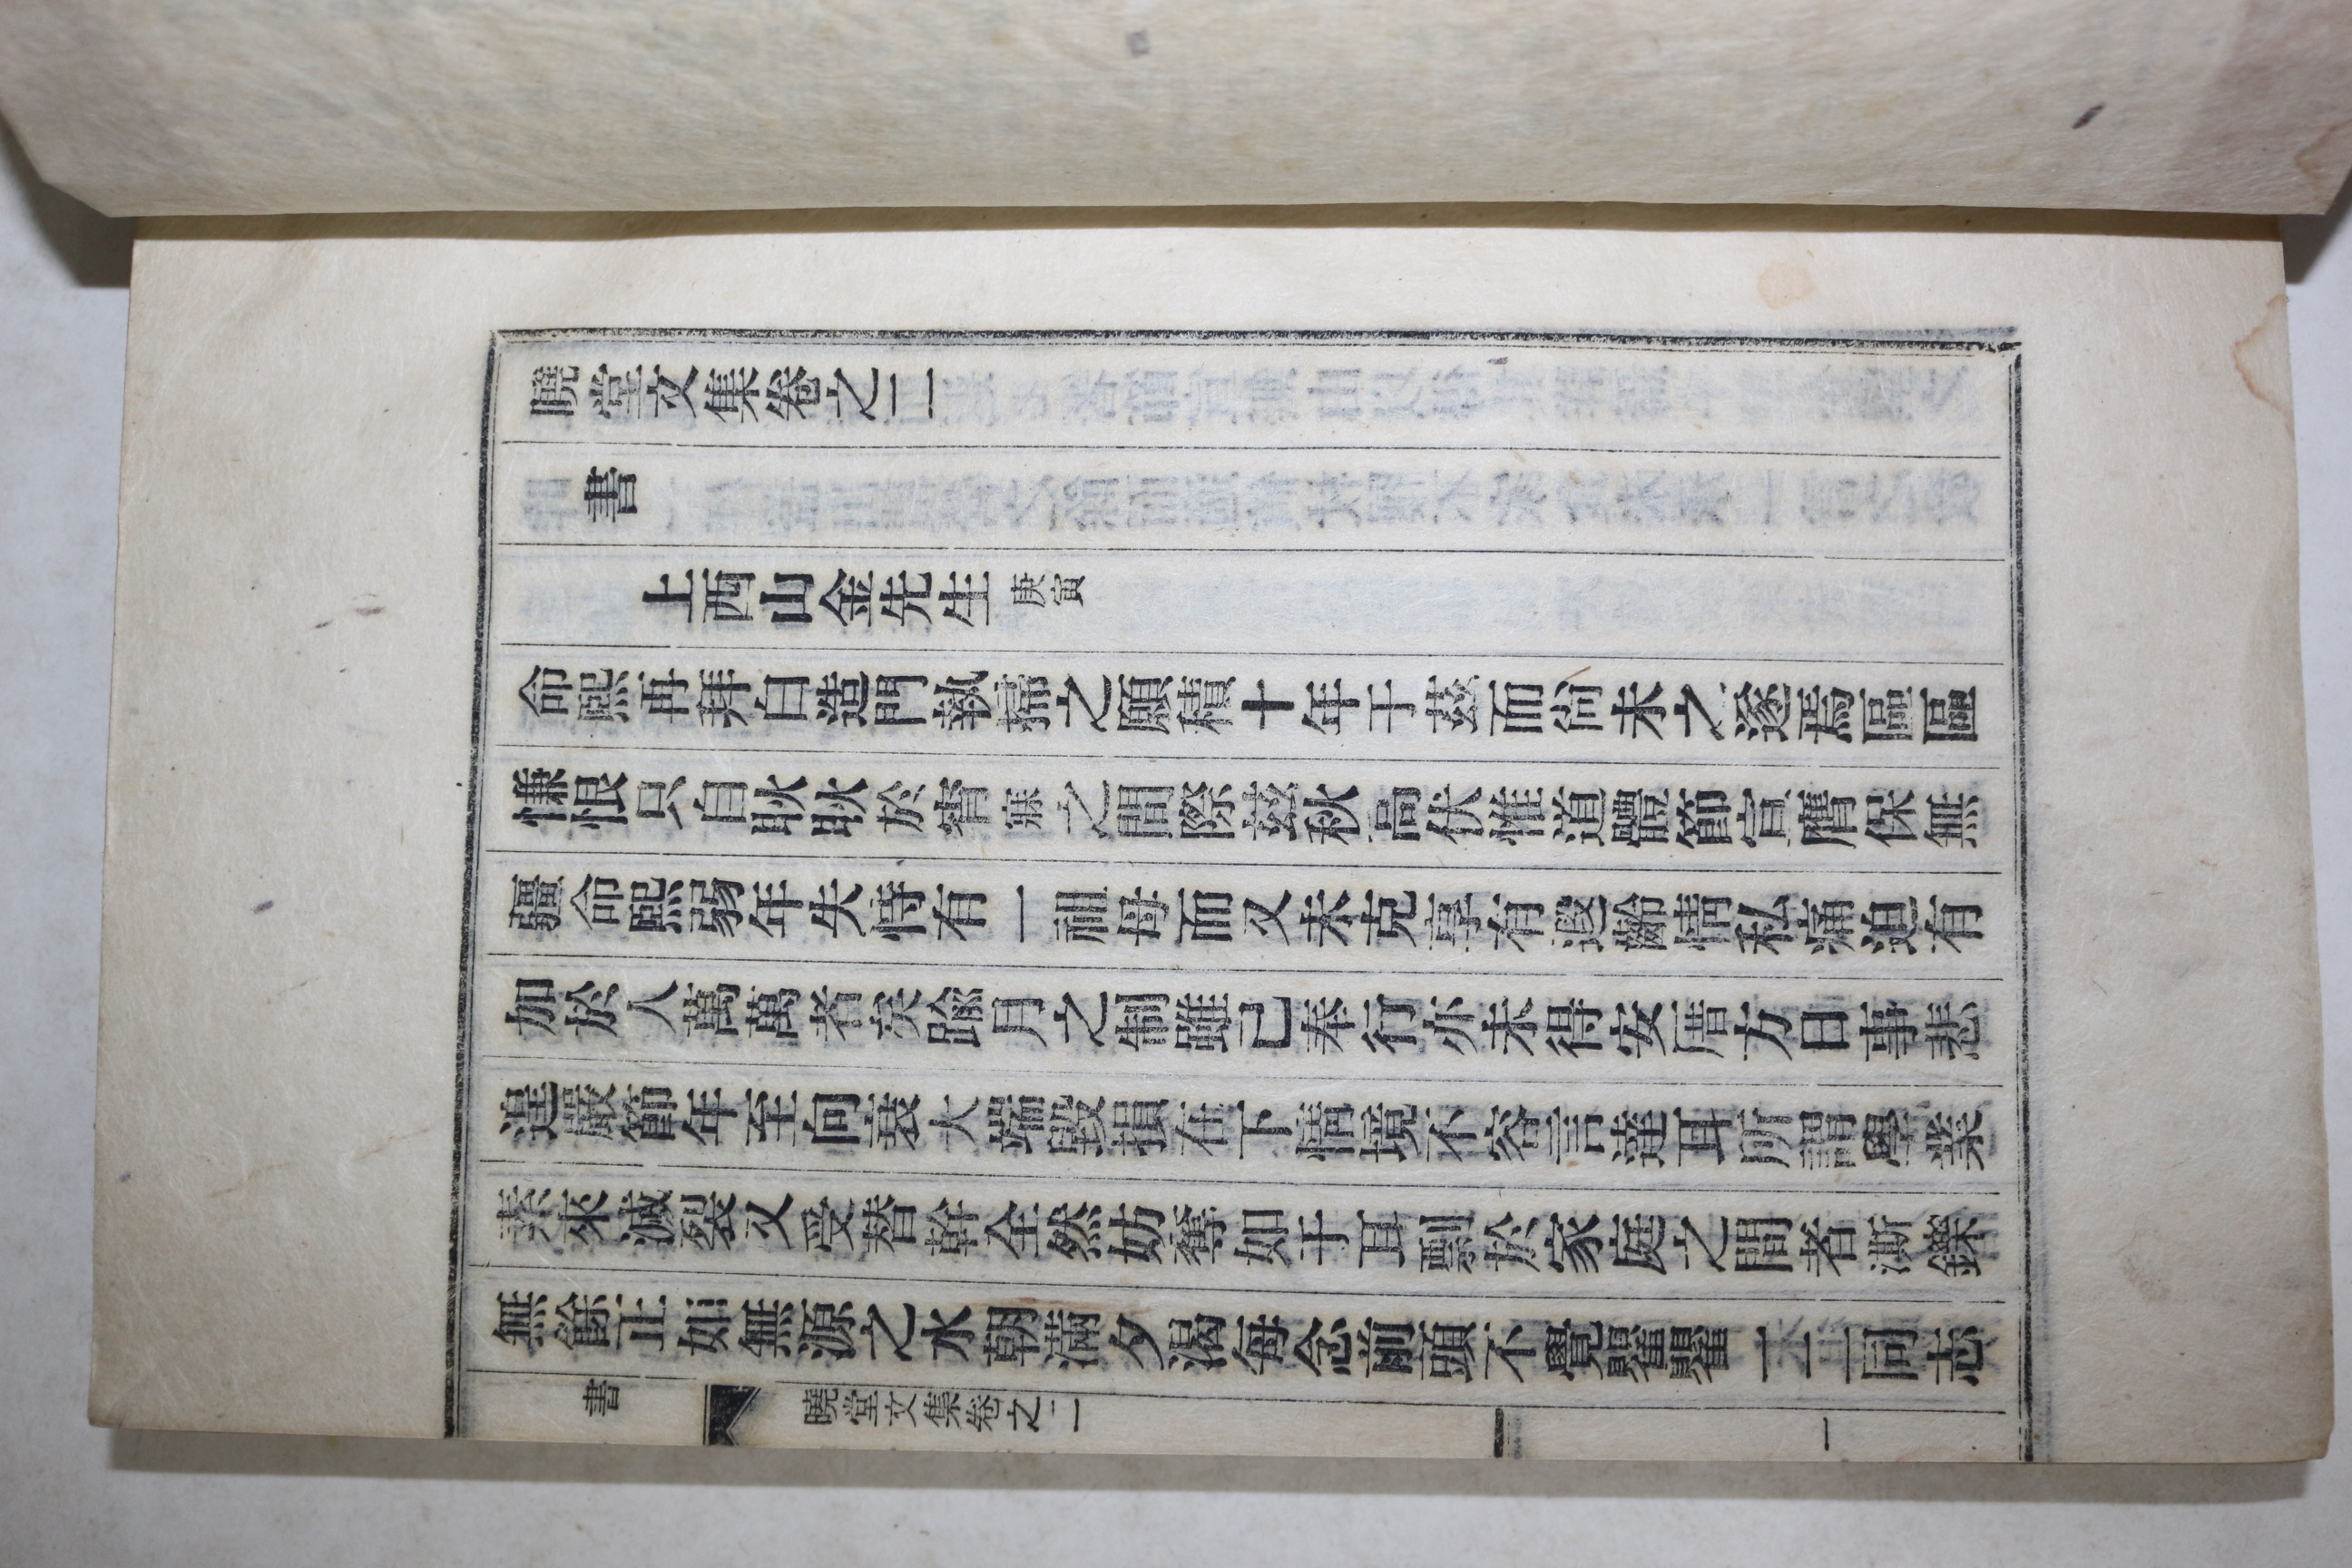 曉堂文集卷之二
書
上西山金先生 庚寅
命熙再拜白造門執掃之願積十年于茲而尙未之遂焉區區
慊恨只自耿耿於宵寐之間際茲秋高伏惟道體節宣膺保無
疆命熙弱年失恃有一祖母而又未克享有遐齡情私痛迫有
加於人萬萬者矣踰月之制雖已奉行亦未得安厝方日事悲
遑嚴節年至向衰大端毀損在下情境不容言達耳所謂學業
素來滅裂又受替幹全然妨奪如于耳剽於家庭之間者澌鑠
無餘正如無源之水朝滿夕渴每念前頭不覺瞿瞿一二同志
書
曉堂文集卷之二
一